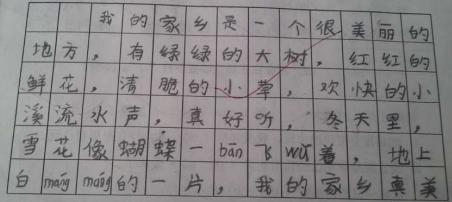 我的家乡是一个很美丽的
地方，有绿绿的大树，红红的
鲜花，清脆的小草，欢快的小
溪流水声，真好听，冬天里，
雪花像蝴蝶一bān飞wǔ着，地上
白máng máng的一片，我的家乡真美